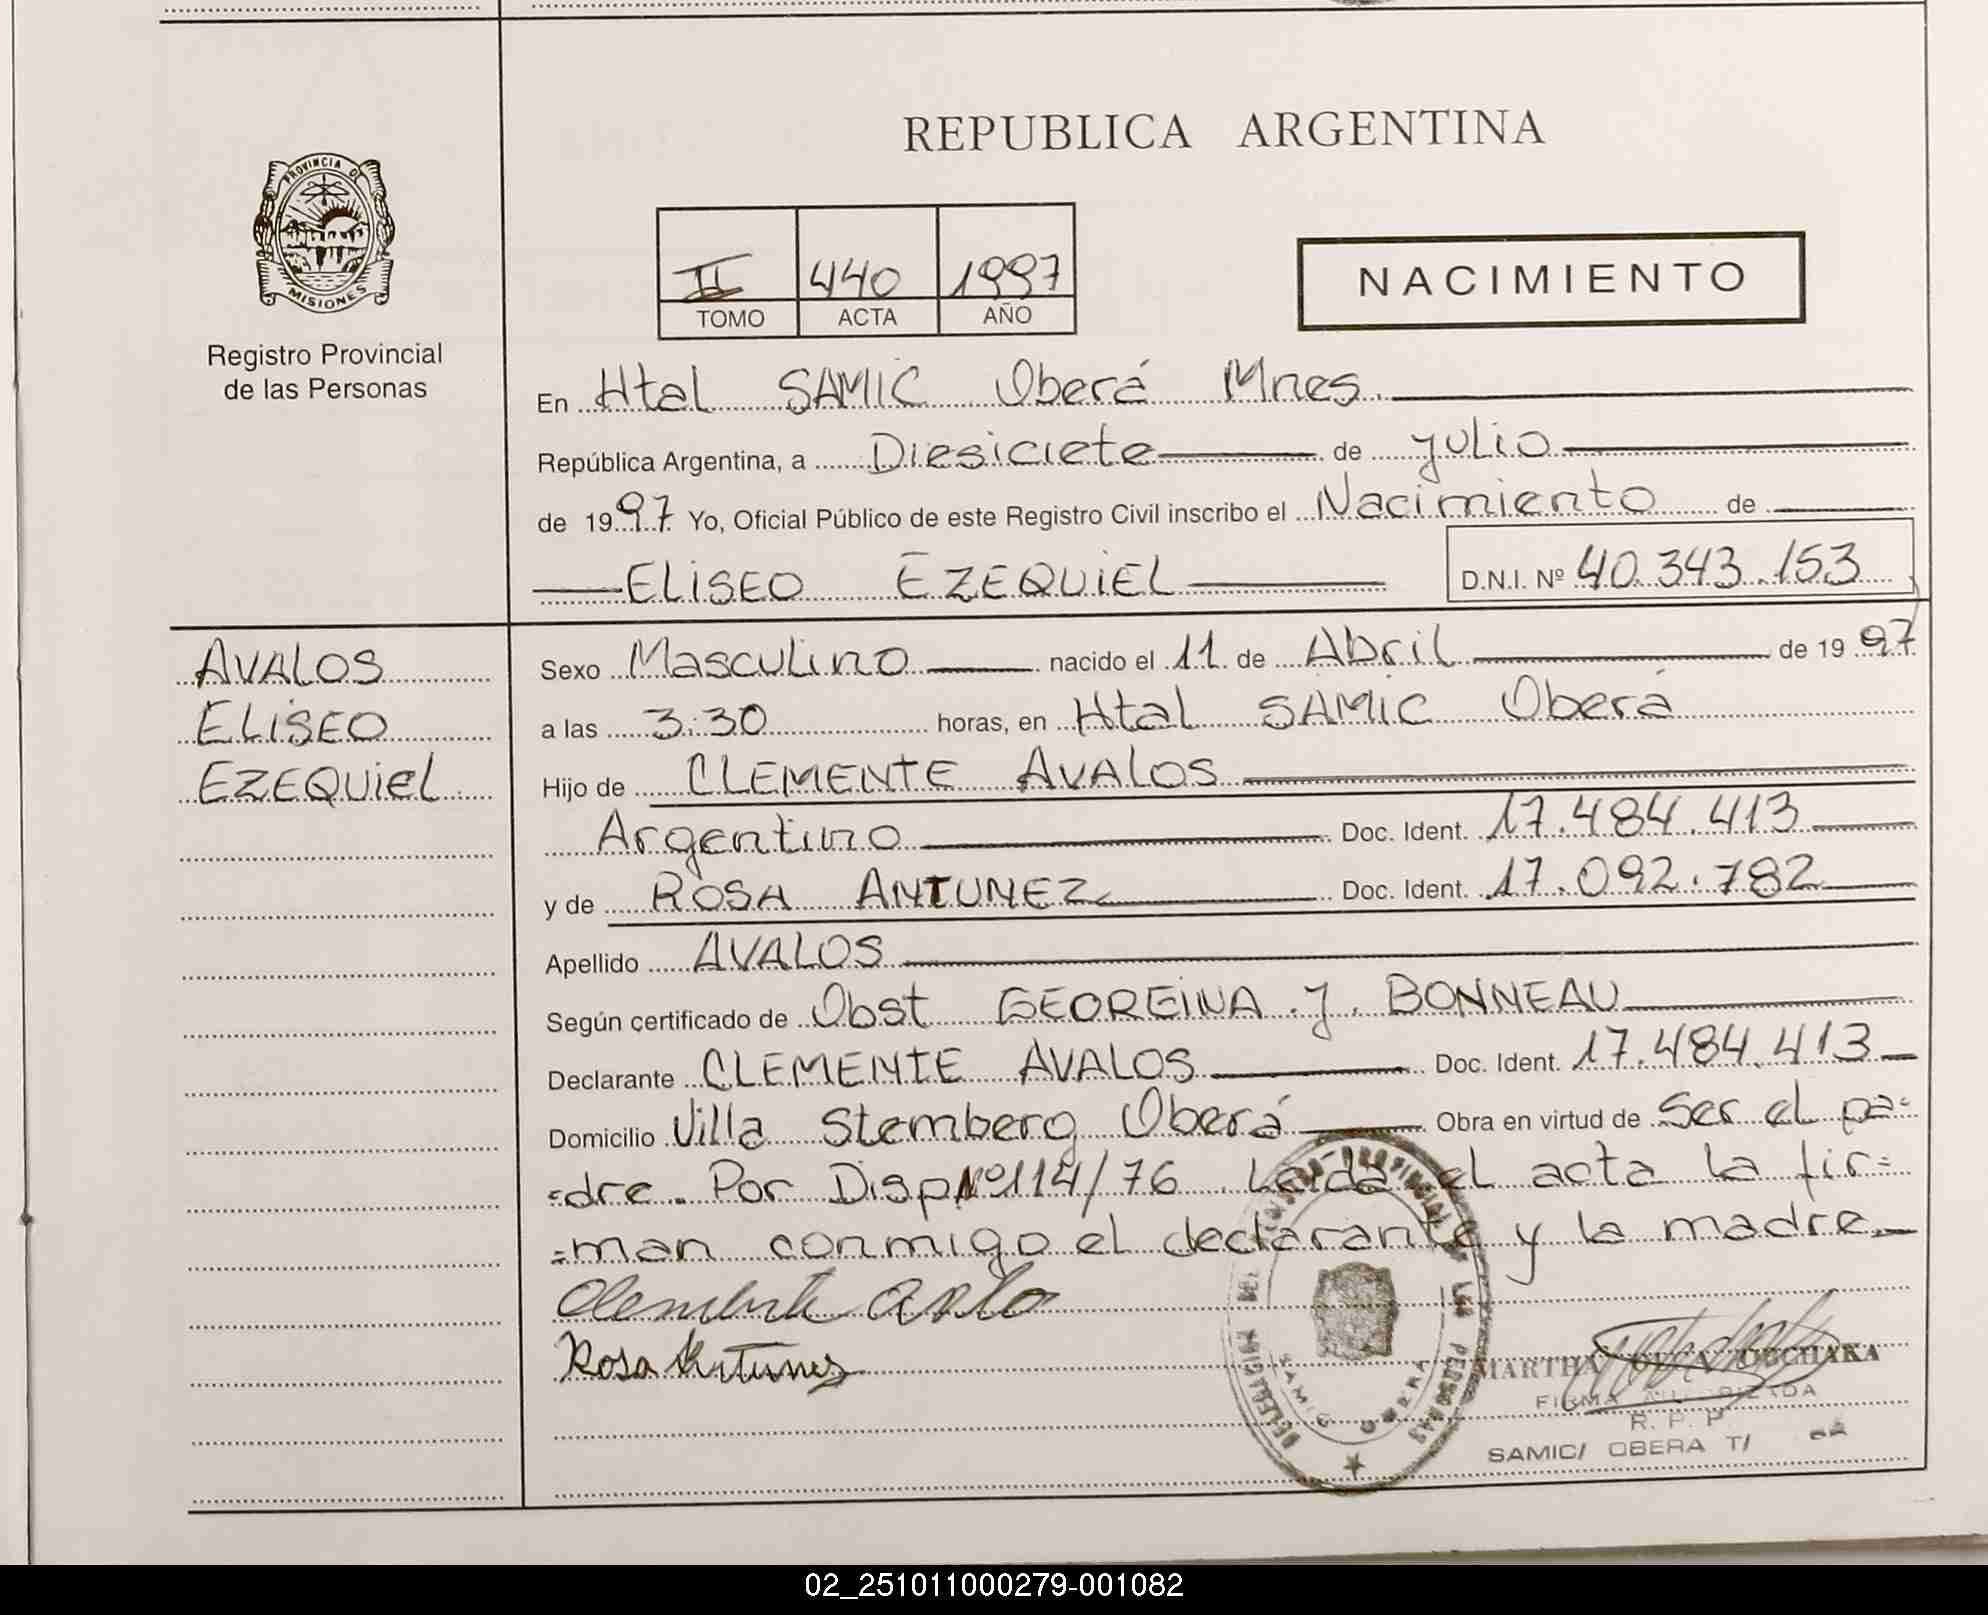 REPUBLICA ARGENTINA
PROVINCIA DE
MISIONES
Registro Provincial
de las Personas
II 440 1997
TOMO ACTA AÑO
NACIMIENTO
En Htal SAMIC Oberá Mnes.
República Argentina, a Diesiciete de julio
de 1997 Yo, Oficial Público de este Registro Civil inscribo el Nacimiento de
ELISEO EZEQUIEL D.N.I. Nº 40.343.153
AVALOS
ELISEO
EZEQUIEL
Sexo Masculino nacido el 11 de Abril de 1997
a las 3:30 horas, en Htal SAMIC Oberá
Hijo de CLEMENTE AVALOS
Argentino Doc. Ident. 17.484.413
y de ROSA ANTUNEZ Doc. Ident. 17.092.782
Apellido AVALOS
Según certificado de Obst GEOREINA J. BONNEAU
Declarante CLEMENTE AVALOS Doc. Ident. 17.484.413
Domicilio Villa Stemberg Oberá Obra en virtud de Ser el pa=
=dre. Por Disp Nº114/76 Leida el acta la fir=
=man conmigo el declarante y la madre
Rosa Antunez
MARTHA
FIRMA AUTORIZADA
R. P. P.
SAMIC/ OBERA T/
DELEGACION REGISTRO PROVINCIAL DE LAS PERSONAS
SAMIC OBERA
02_251011000279-001082